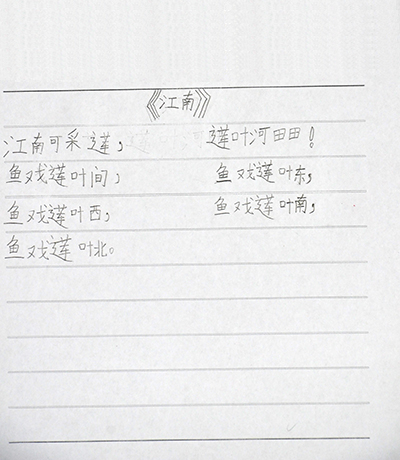 《江南》
江南可采莲， 莲叶河田田！
鱼戏莲叶间， 鱼戏莲叶东，
鱼戏莲叶西， 鱼戏莲叶南，
鱼戏莲叶北。